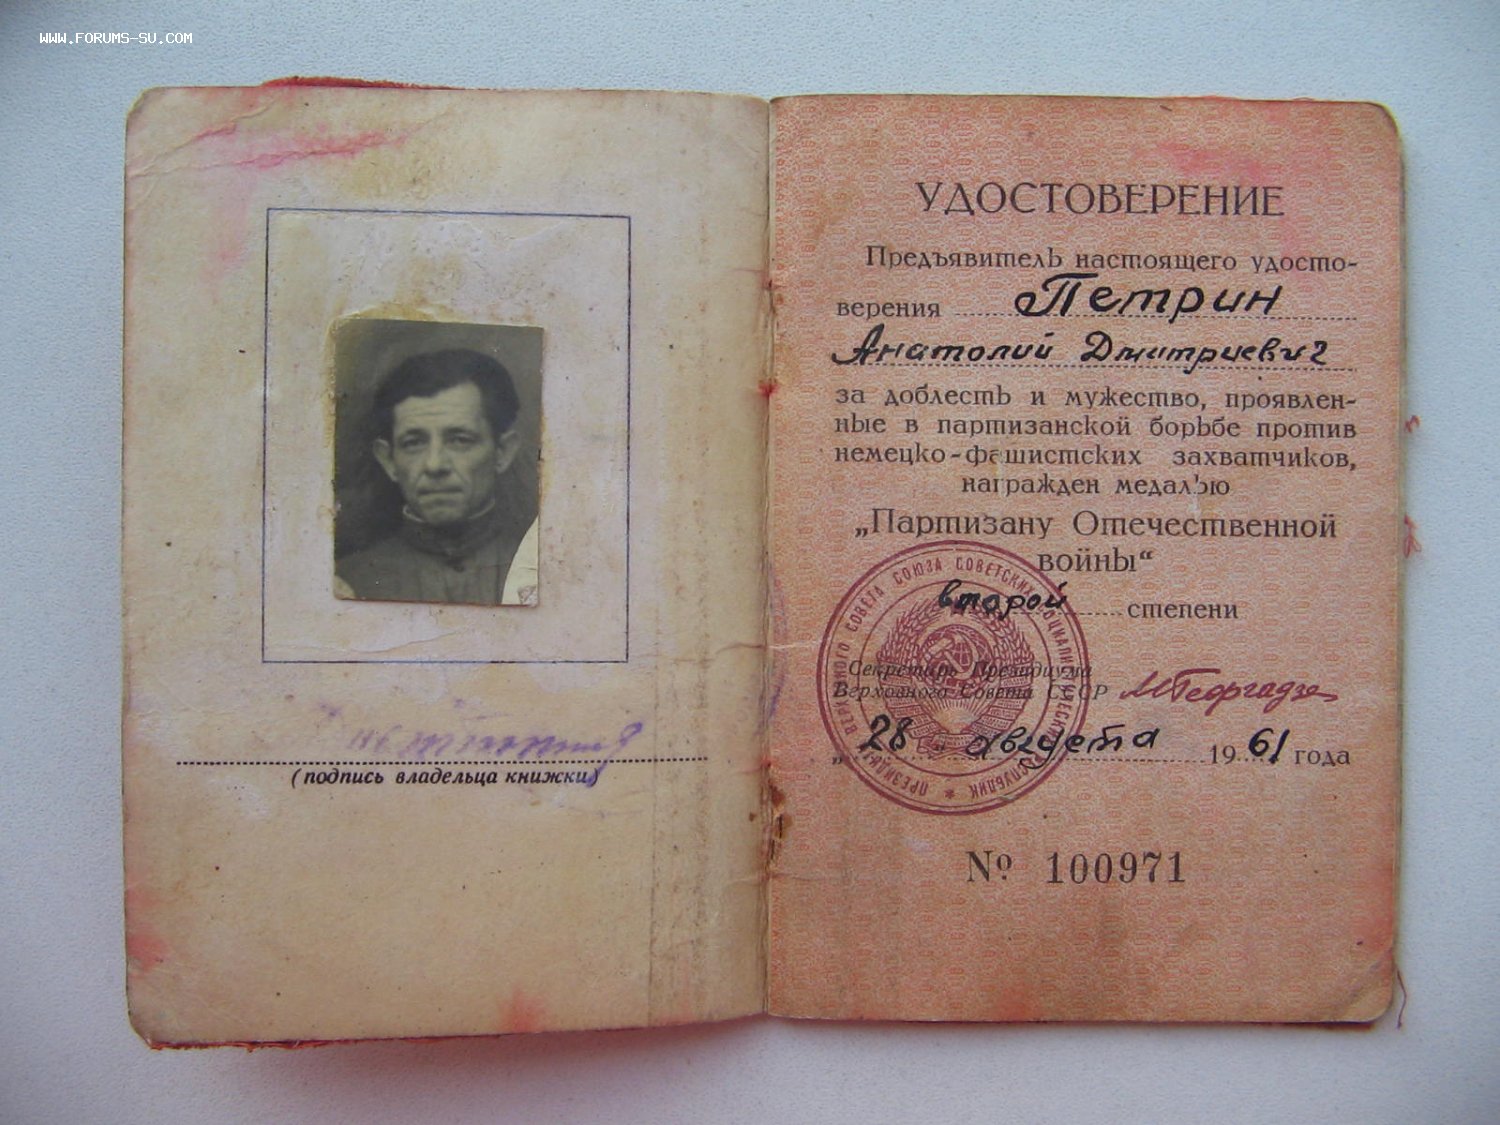 WWW.FORUMS-SU.COM
(подпись владельца книжки)
УДОСТОВЕРЕНИЕ
Предъявитель настоящего удосто-
верения Петрин
Анатолий Дмитриевич
за доблесть и мужество, проявлен-
ные в партизанской борьбе против
немецко-фашистских захватчиков,
награжден медалью
„Партизану Отечественной
войны“
второй степени
Секретарь Президиума
Верховного Совета СССР МГеоргадзе
„28" августа 1961 года
ПРЕЗИДИУМ ВЕРХОВНОГО СОВЕТА СОЮЗА СОВЕТСКИХ СОЦИАЛИСТИЧЕСКИХ РЕСПУБЛИК
№ 100971